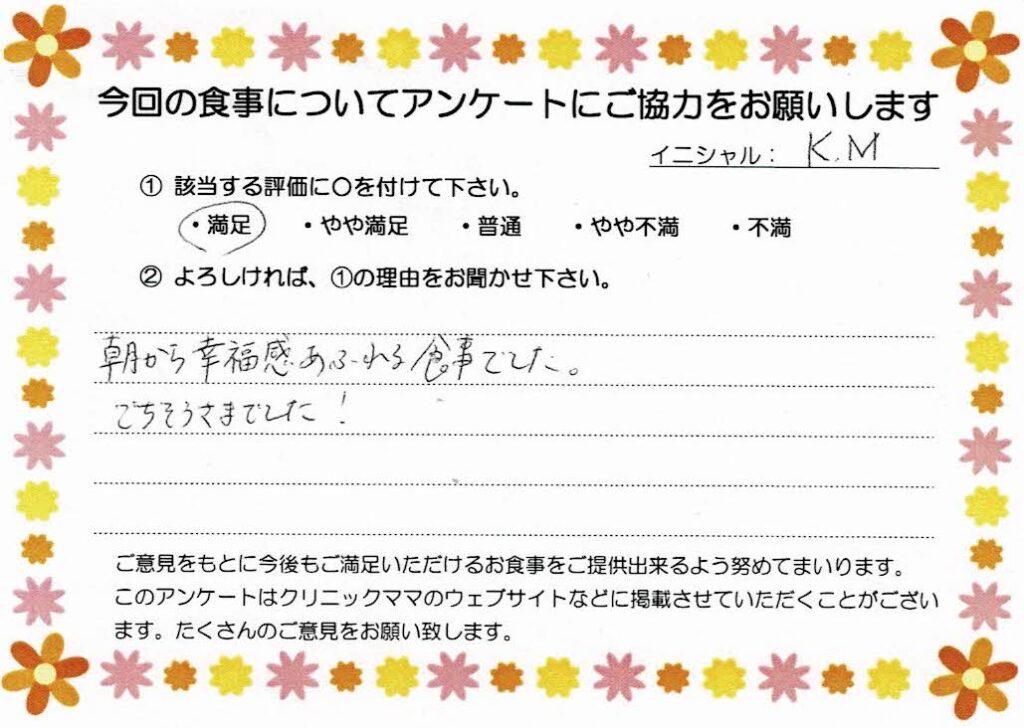 今回の食事についてアンケートにご協力をお願いします
イニシャル： K.M
① 該当する評価に○を付けて下さい。
・満足 ・やや満足 ・普通 ・やや不満 ・不満
② よろしければ、①の理由をお聞かせ下さい。
朝から幸福感あふれる食事でした。
ごちそうさまでした！
ご意見をもとに今後もご満足いただけるお食事をご提供出来るよう努めてまいります。
このアンケートはクリニックママのウェブサイトなどに掲載させていただくことがござい
ます。たくさんのご意見をお願い致します。